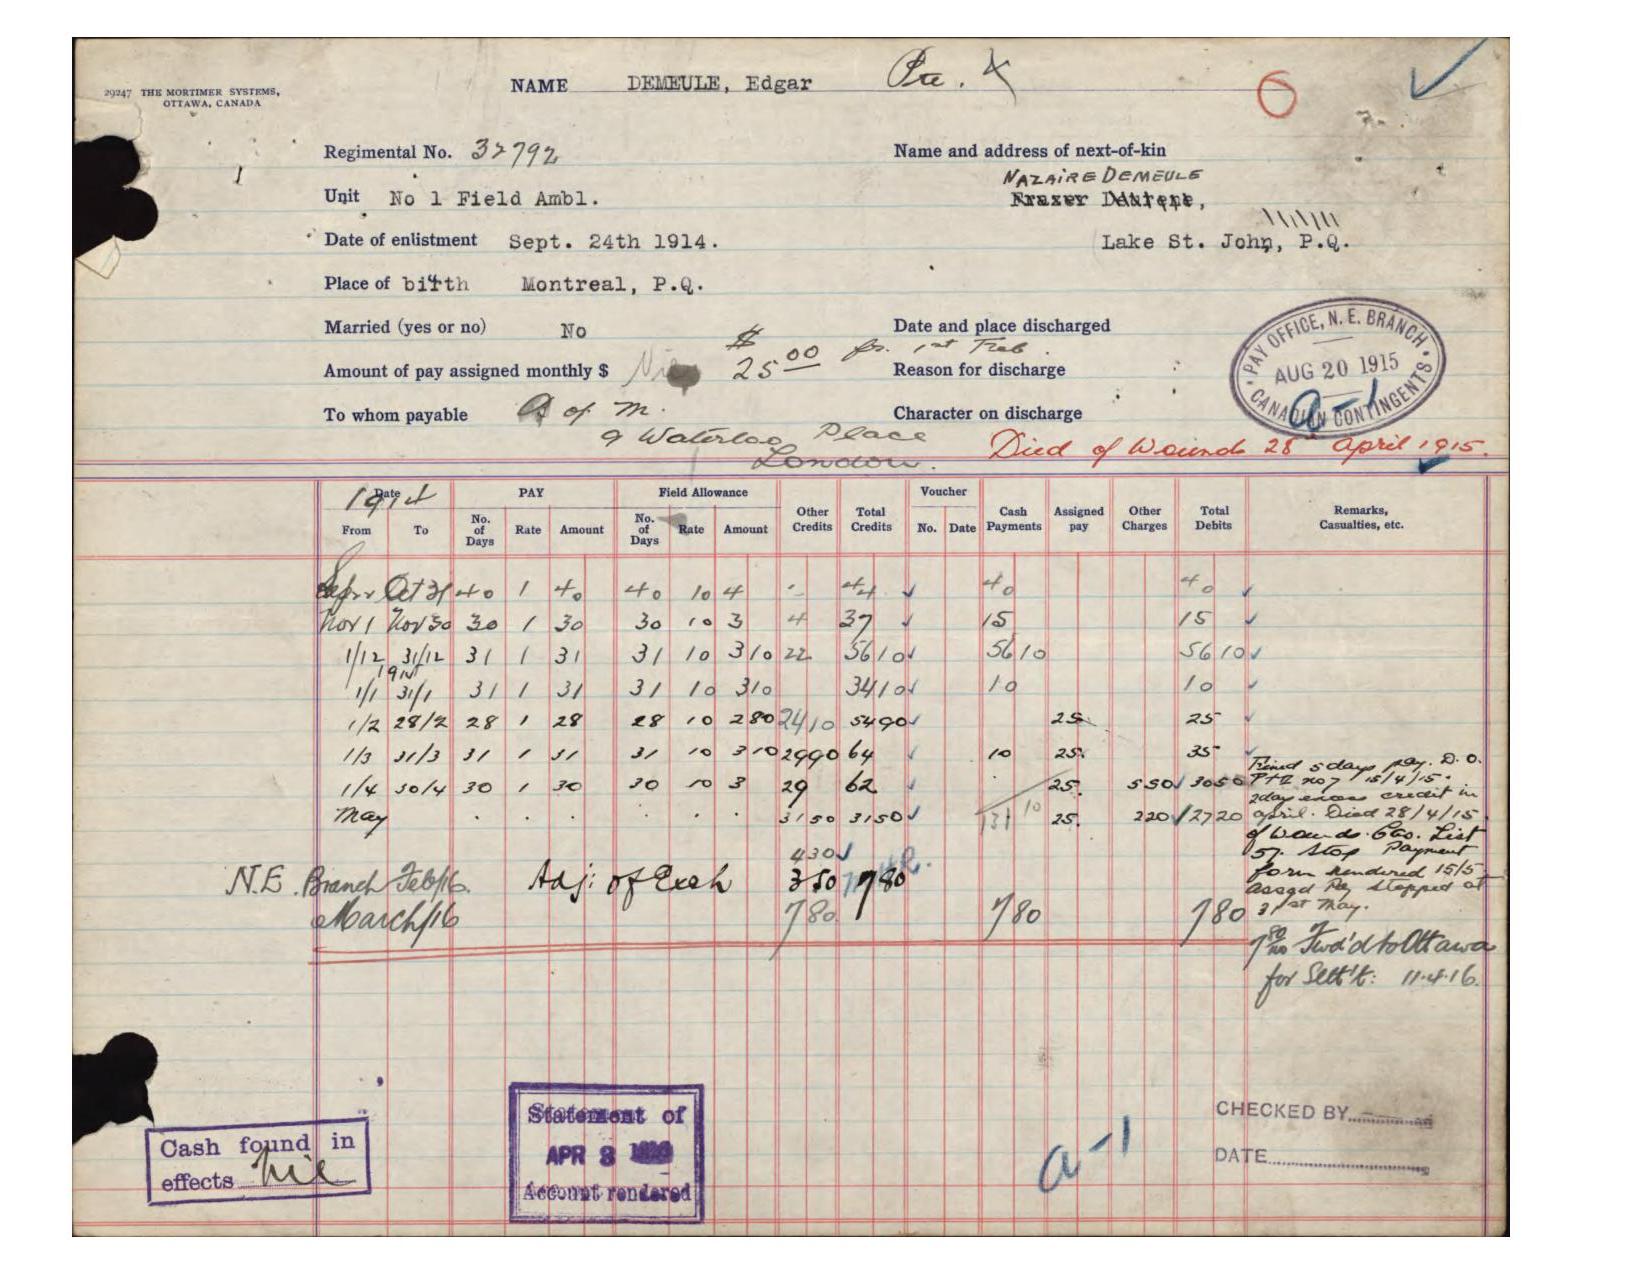 29247 THE MORTIMER SYSTEMS,
OTTAWA, CANADA
NAME DEMEULE, Edgar Pte.
6
Regimental No. 32792
Name and address of next-of-kin
NAZAIRE DEMEULE
Unit No 1 Field Ambl.
Date of enlistment Sept. 24th 1914.
Lake St. John, P.Q.
Place of birth Montreal, P.Q.
Married (yes or no) No
Date and place discharged
Amount of pay assigned monthly $ Nil $ 25 00 fr. 1st Feb.
Reason for discharge
To whom payable A of M.
9 Waterloo Place
London.
Character on discharge
PAY OFFICE, N. E. BRANCH
AUG 20 1915
CANADIAN CONTINGENTS
a-1
Died of Wounds 28th April 1915.
1914
Date PAY Field Allowance Other Credits Total Credits Voucher Cash Payments Assigned pay Other Charges Total Debits Remarks, Casualties, etc.
From To No. of Days Rate Amount No. of Days Rate Amount No. Date
Oct 31 40 1 40 40 10 4 - 44 40 40
Nov 1 Nov 30 30 1 30 30 10 3 4 37 15 15
1/12 31/12 31 1 31 31 10 3 10 22 56 10 56 10 56 10
1915
1/1 31/1 31 1 31 31 10 3 10 34 10 10 10
1/2 28/2 28 1 28 28 10 2 80 24 10 54 90 25 25
1/3 31/3 31 1 31 31 10 3 10 29 90 64 10 25 35
1/4 30/4 30 1 30 30 10 3 29 62 25 5 50 30 50
May 31 50 31 50 25 2 20 27 20
Fined 5 days pay. D. O.
Pt II no 7 15/4/15.
2 day excess credit in
April. Died 28/4/15
of Wounds. Cas. List
57. Stop Payment
form rendered 15/5
Assgd Pay stopped at
31st May.
4 30
N.E. Branch Feb/16. Adj: of Exch 3 50 7 80
March/16 7 80 7 80 7 80
7 80/100 Fwd'd to Ottawa
for Sett't: 11.4.16.
Cash found in
effects Nil
Statement of
APR 3
Account rendered
a-1
CHECKED BY
DATE